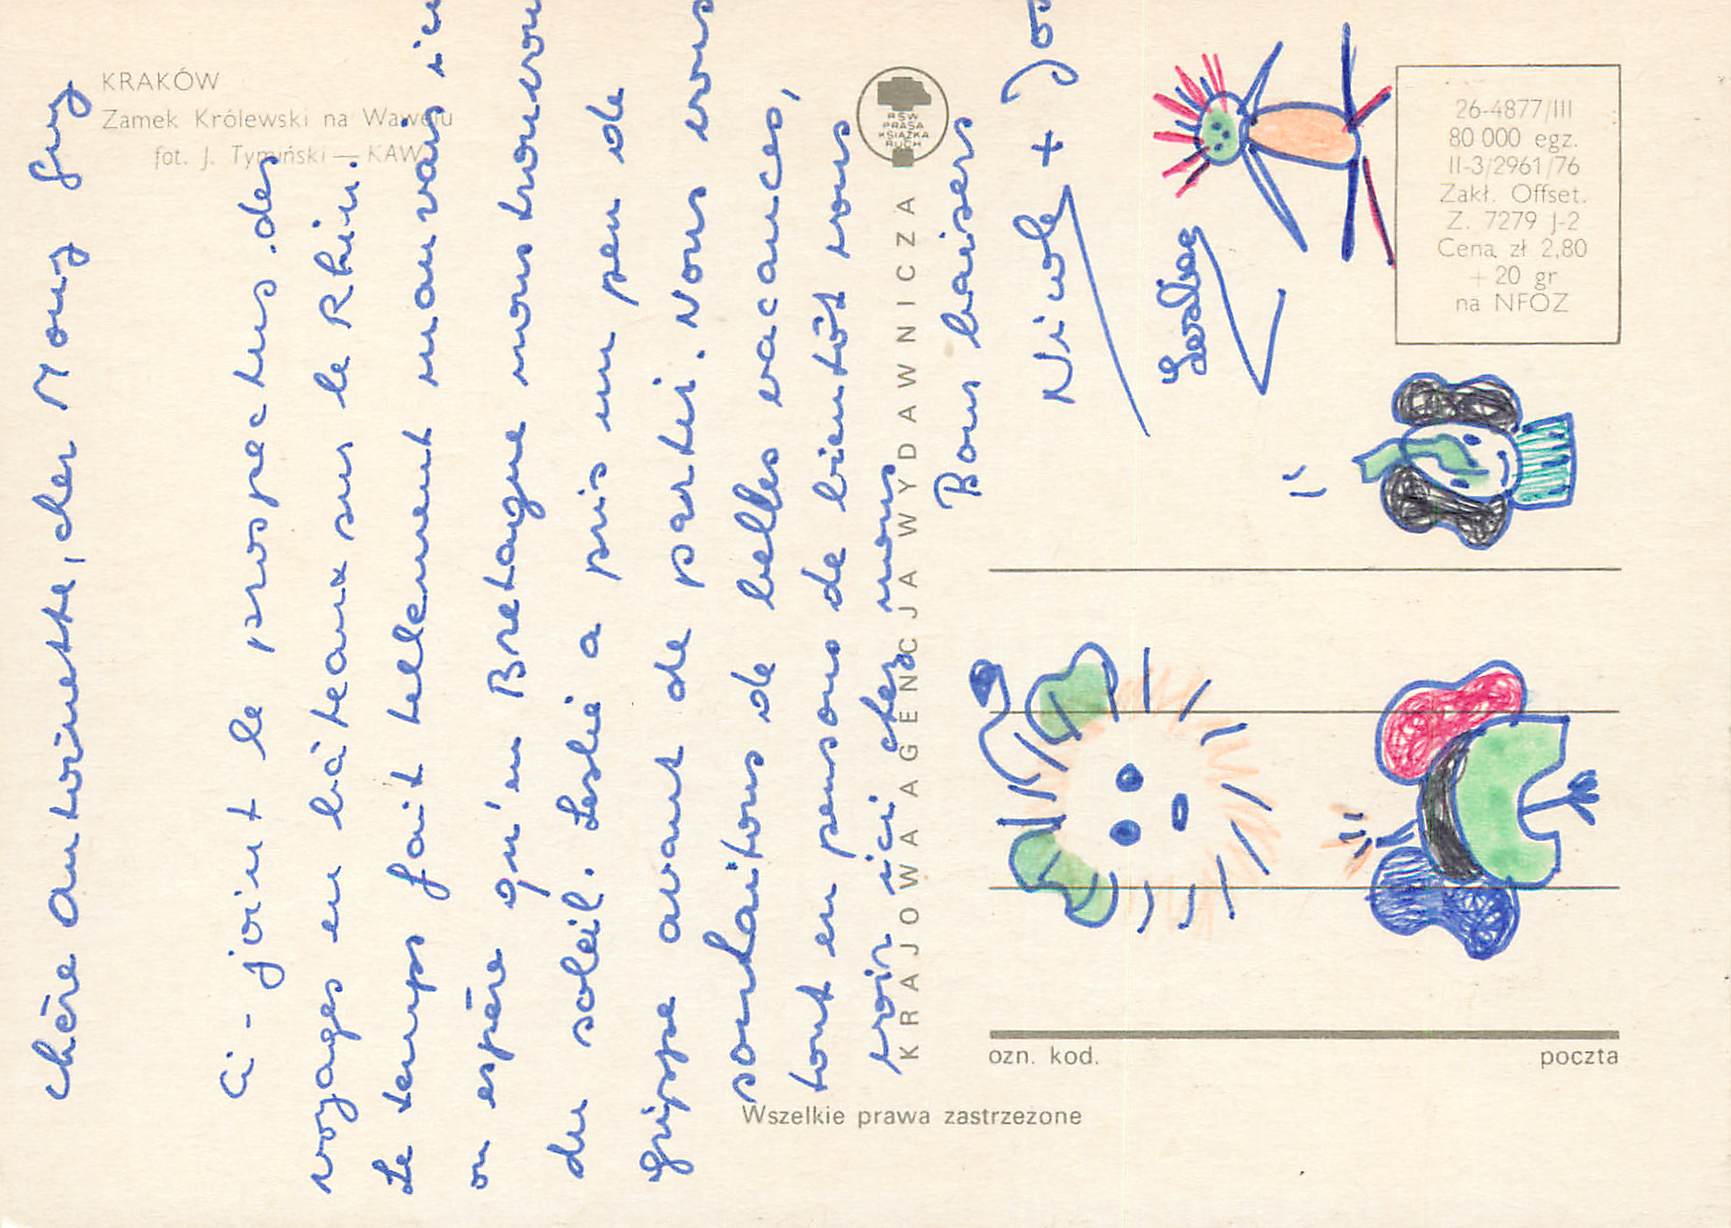 KRAKÓW
Zamek Królewski na Wawelu
fot. J. Tymiński — KAW
Chère Antoinette, cher Mony Guy
Ci-joint le prospectus des
voyages en bâteaux sur le Rhin.
Le temps fait tellement mauvais ici
on espère qu'en Bretagne nous trouverons
du soleil. Leslie a pris un peu de
grippe avant de partir. Nous vous
souhaitons de belles vacances,
tout en pensons de bientôt vous
voir ici chez nous
Bons baisers
Nicole + Jos
Leslie
RSW
PRASA
KSIĄŻKA
RUCH
KRAJOWA AGENCJA WYDAWNICZA
26-4877/III
80 000 egz.
II-3/2961/76
Zakł. Offset.
Z. 7279 J-2
Cena zł 2,80
+ 20 gr
na NFOZ
ozn. kod.
poczta
Wszelkie prawa zastrzeżone